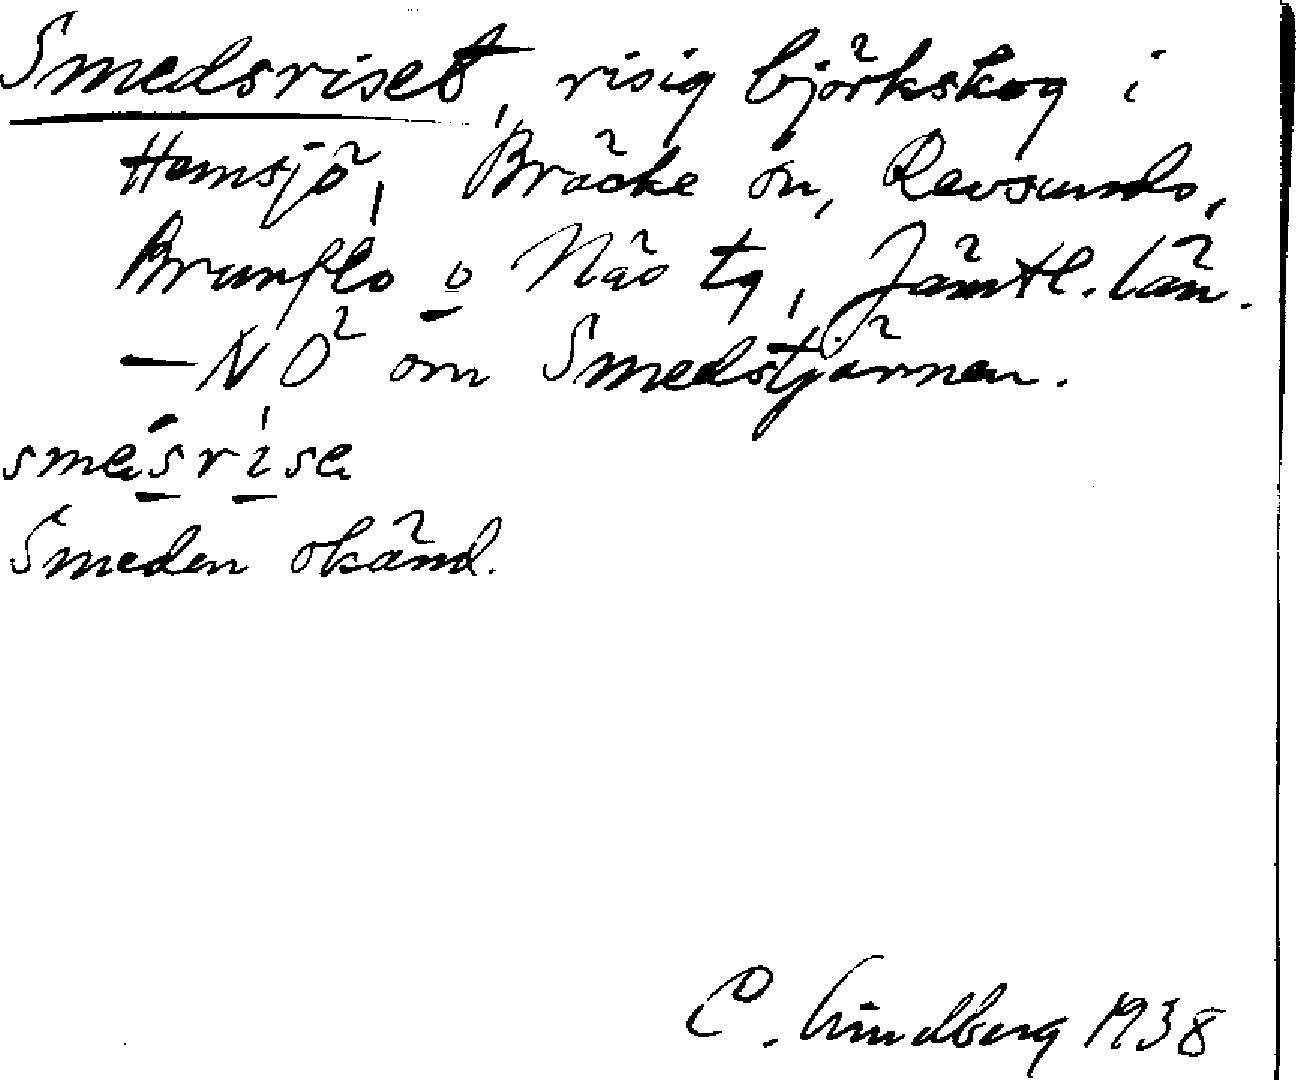 Smedsriset, risig björkskog i
Hemsjö, Bräcke sn, Revsunds,
Brunflo o Näs tg, Jämtl. län.
— NO om Smedstjärnen.
smésrise
Smeden okänd.
C. Lindberg 1938